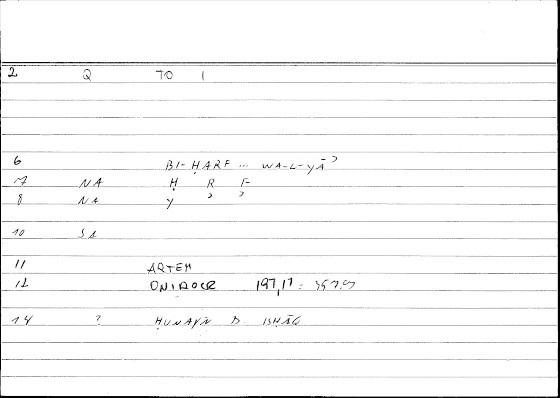 2 Q TO 1
6 BI-ḤARF ... WA-L-YĀʾ
7 NA Ḥ R F
8 NA Y ʾ ʾ
10 SA
11 ARTEM
12 ONIROCR 197,17 =
14 ? ḤUNAYN B ISḤĀQ